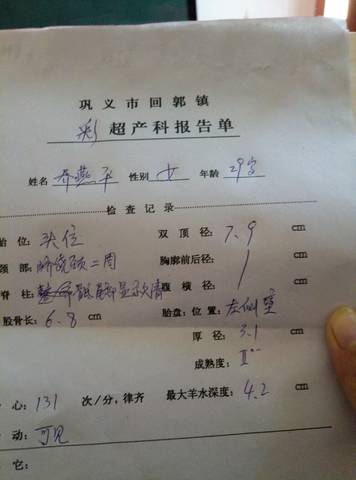 巩义市回郭镇
彩超产科报告单
姓名 乔燕平 性别 女 年龄 29岁
检查记录
胎位: 头位 双顶径: 7.9 cm
颈部: 脐绕颈二周 胸廓前后径: cm
脊柱: 显示欠清 腹横径: cm
股骨长: 6.8 cm 胎盘:位置: 左侧壁
厚径: 3.1 cm
成熟度: II°
心: 131 次/分,律齐 最大羊水深度: 4.2 cm
动: 可见
它: